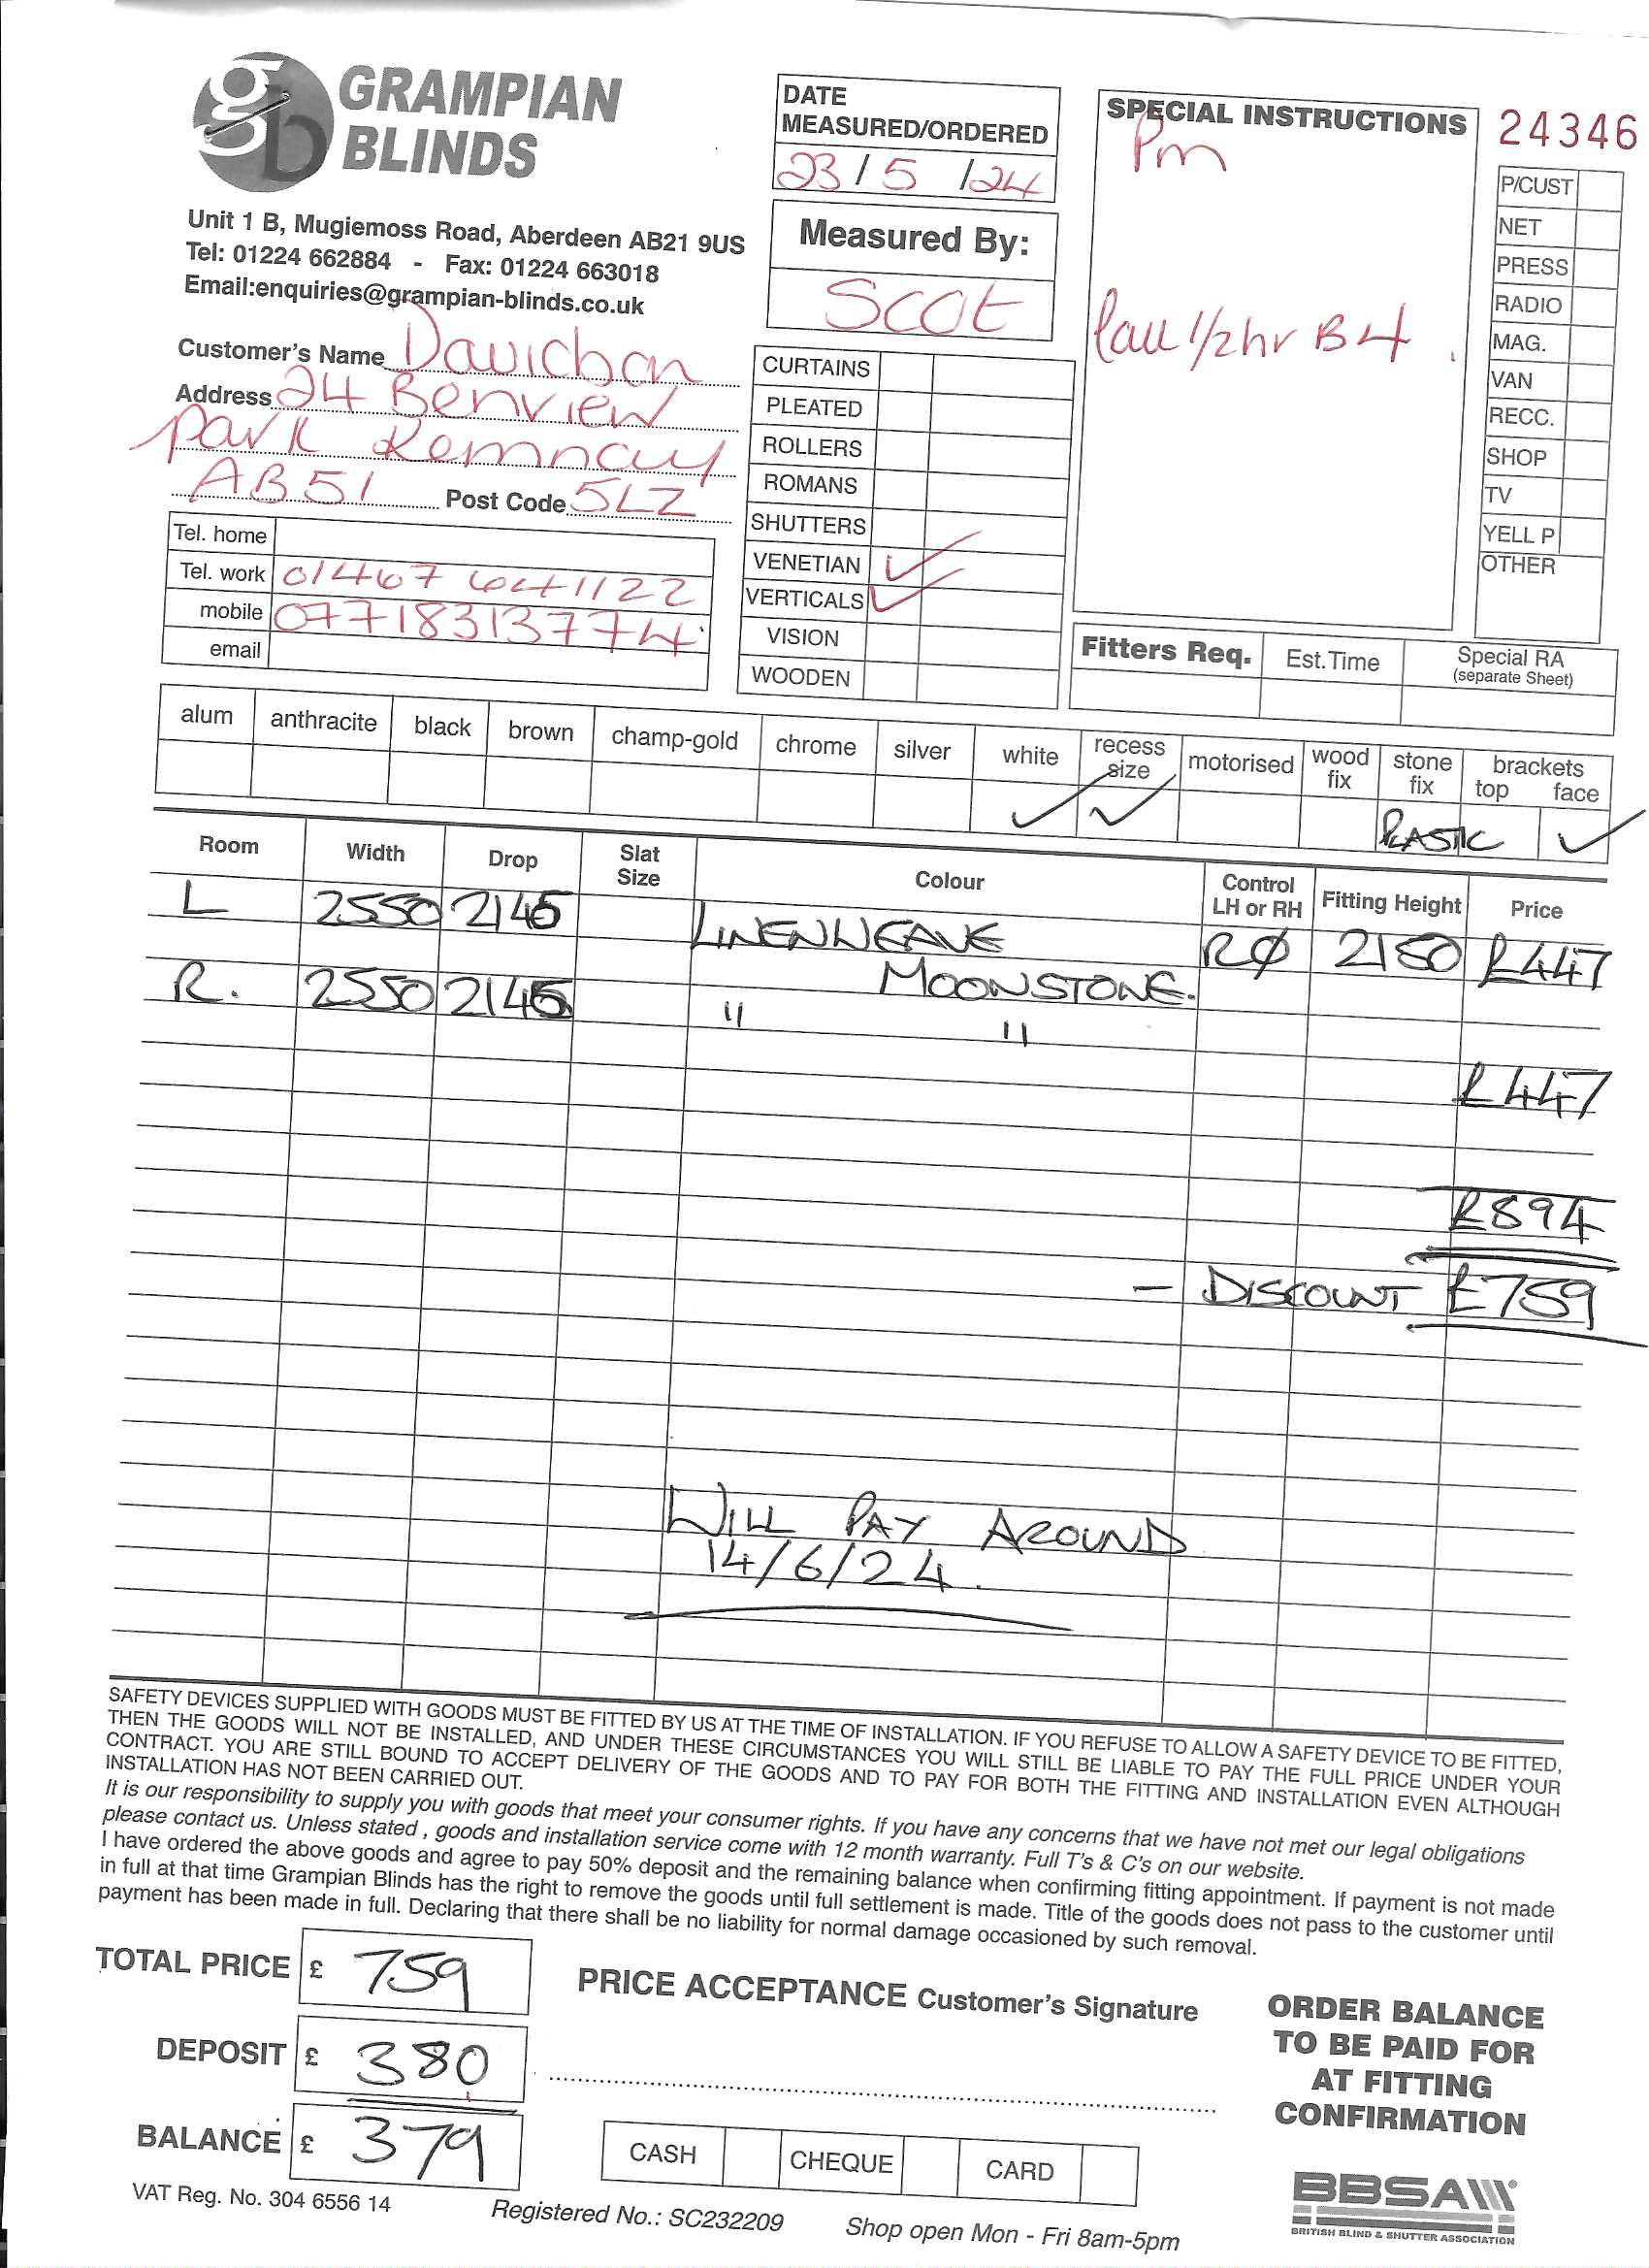 gb GRAMPIAN BLINDS
Unit 1 B, Mugiemoss Road, Aberdeen AB21 9US
Tel: 01224 662884 - Fax: 01224 663018
Email:enquiries@grampian-blinds.co.uk
DATE MEASURED/ORDERED
23/5/24
Measured By:
Scot
SPECIAL INSTRUCTIONS
Pm
Call 1/2hr B4.
24346
P/CUST
NET
PRESS
RADIO
MAG.
VAN
RECC.
SHOP
TV
YELL P
OTHER
Customer's Name Davidson
Address 24 Benview
Park Kemnay
AB51 Post Code 5LZ
Tel. home
Tel. work 01467 641122
mobile 07718313774
email
CURTAINS
PLEATED
ROLLERS
ROMANS
SHUTTERS
VENETIAN ✓
VERTICALS ✓
VISION
WOODEN
Fitters Req. Est.Time Special RA (separate Sheet)
alum anthracite black brown champ-gold chrome silver white recess size motorised wood fix stone fix brackets top face
✓ ✓ PLASTIC ✓
Room Width Drop Slat Size Colour Control LH or RH Fitting Height Price
L 2550 2145 LINENWEAVE RØ 2150 £447
MOONSTONE.
R. 2550 2145 " "
£447
£894
- DISCOUNT £759
WILL PAY AROUND
14/6/24.
SAFETY DEVICES SUPPLIED WITH GOODS MUST BE FITTED BY US AT THE TIME OF INSTALLATION. IF YOU REFUSE TO ALLOW A SAFETY DEVICE TO BE FITTED,
THEN THE GOODS WILL NOT BE INSTALLED, AND UNDER THESE CIRCUMSTANCES YOU WILL STILL BE LIABLE TO PAY THE FULL PRICE UNDER YOUR
CONTRACT. YOU ARE STILL BOUND TO ACCEPT DELIVERY OF THE GOODS AND TO PAY FOR BOTH THE FITTING AND INSTALLATION EVEN ALTHOUGH
INSTALLATION HAS NOT BEEN CARRIED OUT.
It is our responsibility to supply you with goods that meet your consumer rights. If you have any concerns that we have not met our legal obligations
please contact us. Unless stated , goods and installation service come with 12 month warranty. Full T's & C's on our website.
I have ordered the above goods and agree to pay 50% deposit and the remaining balance when confirming fitting appointment. If payment is not made
in full at that time Grampian Blinds has the right to remove the goods until full settlement is made. Title of the goods does not pass to the customer until
payment has been made in full. Declaring that there shall be no liability for normal damage occasioned by such removal.
TOTAL PRICE £ 759
DEPOSIT £ 380
BALANCE £ 379
PRICE ACCEPTANCE Customer's Signature
CASH CHEQUE CARD
ORDER BALANCE
TO BE PAID FOR
AT FITTING
CONFIRMATION
VAT Reg. No. 304 6556 14
Registered No.: SC232209
Shop open Mon - Fri 8am-5pm
BBSA
BRITISH BLIND & SHUTTER ASSOCIATION